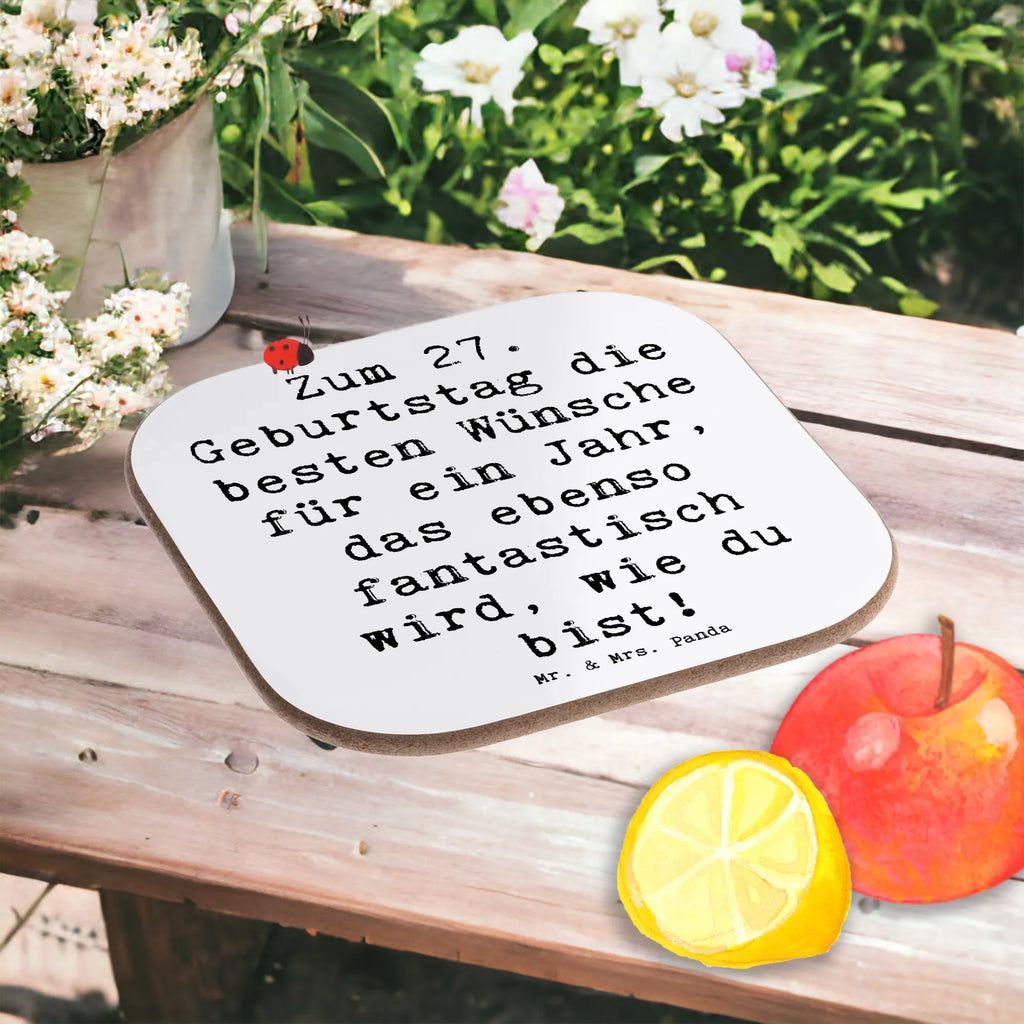 Zum 27.
Geburtstag die
besten Wünsche
für ein Jahr,
das ebenso
fantastisch
wird, wie du
bist!
Mr. & Mrs. Panda